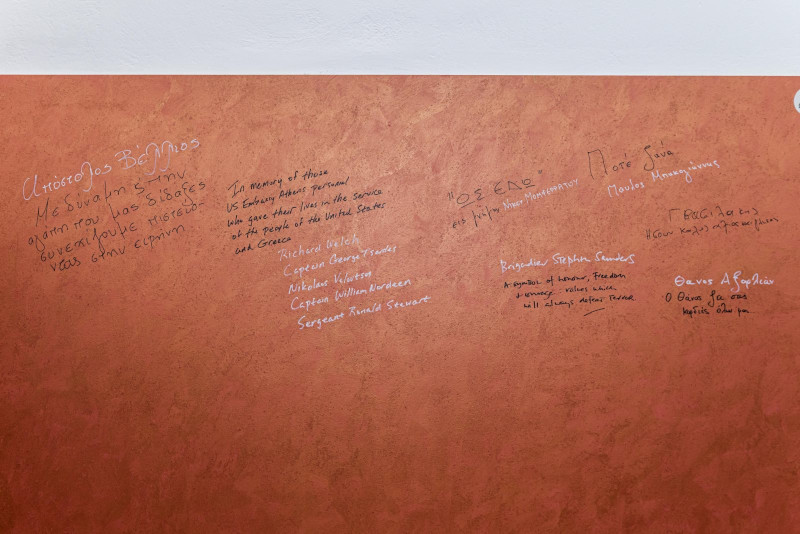 Απόστολος Βέλλιος
Με δύναμη στην
αγάπη που μας δίδαξες
συνεχίζουμε πιστεύο-
ντας στην ειρήνη
In memory of those
US Embassy Athens personal
who gave their lives in the service
of the people of the United States
and Greece
Richard Welch
Captain George Tsantes
Nikolaos Veloutsos
Captain William Nordeen
Sergeant Ronald Stewart
"ΩΣ ΕΔΩ"
εις μνήμη Νίκου ΜΟΜΦΕΡΡΑΤΟΥ
Ποτέ ξανά
Παύλος Μπακογιάννης
Γ Βασιλακος
Ήσουν καλός
Brigadier Stephen Saunders
A symbol of honour, Freedom
+ courage: values which
will always defeat terror
Θάνος Αξαρλιάν
Ο Θάνος ζει στις
καρδιές όλων μας